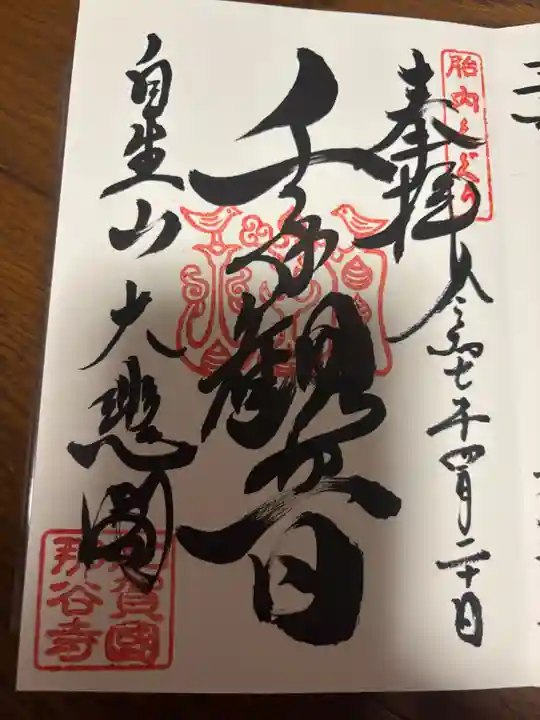 胎内くぐり
奉拝
令和七年四月二十日
千手観世音
自生山大悲閣
加賀國
那谷寺